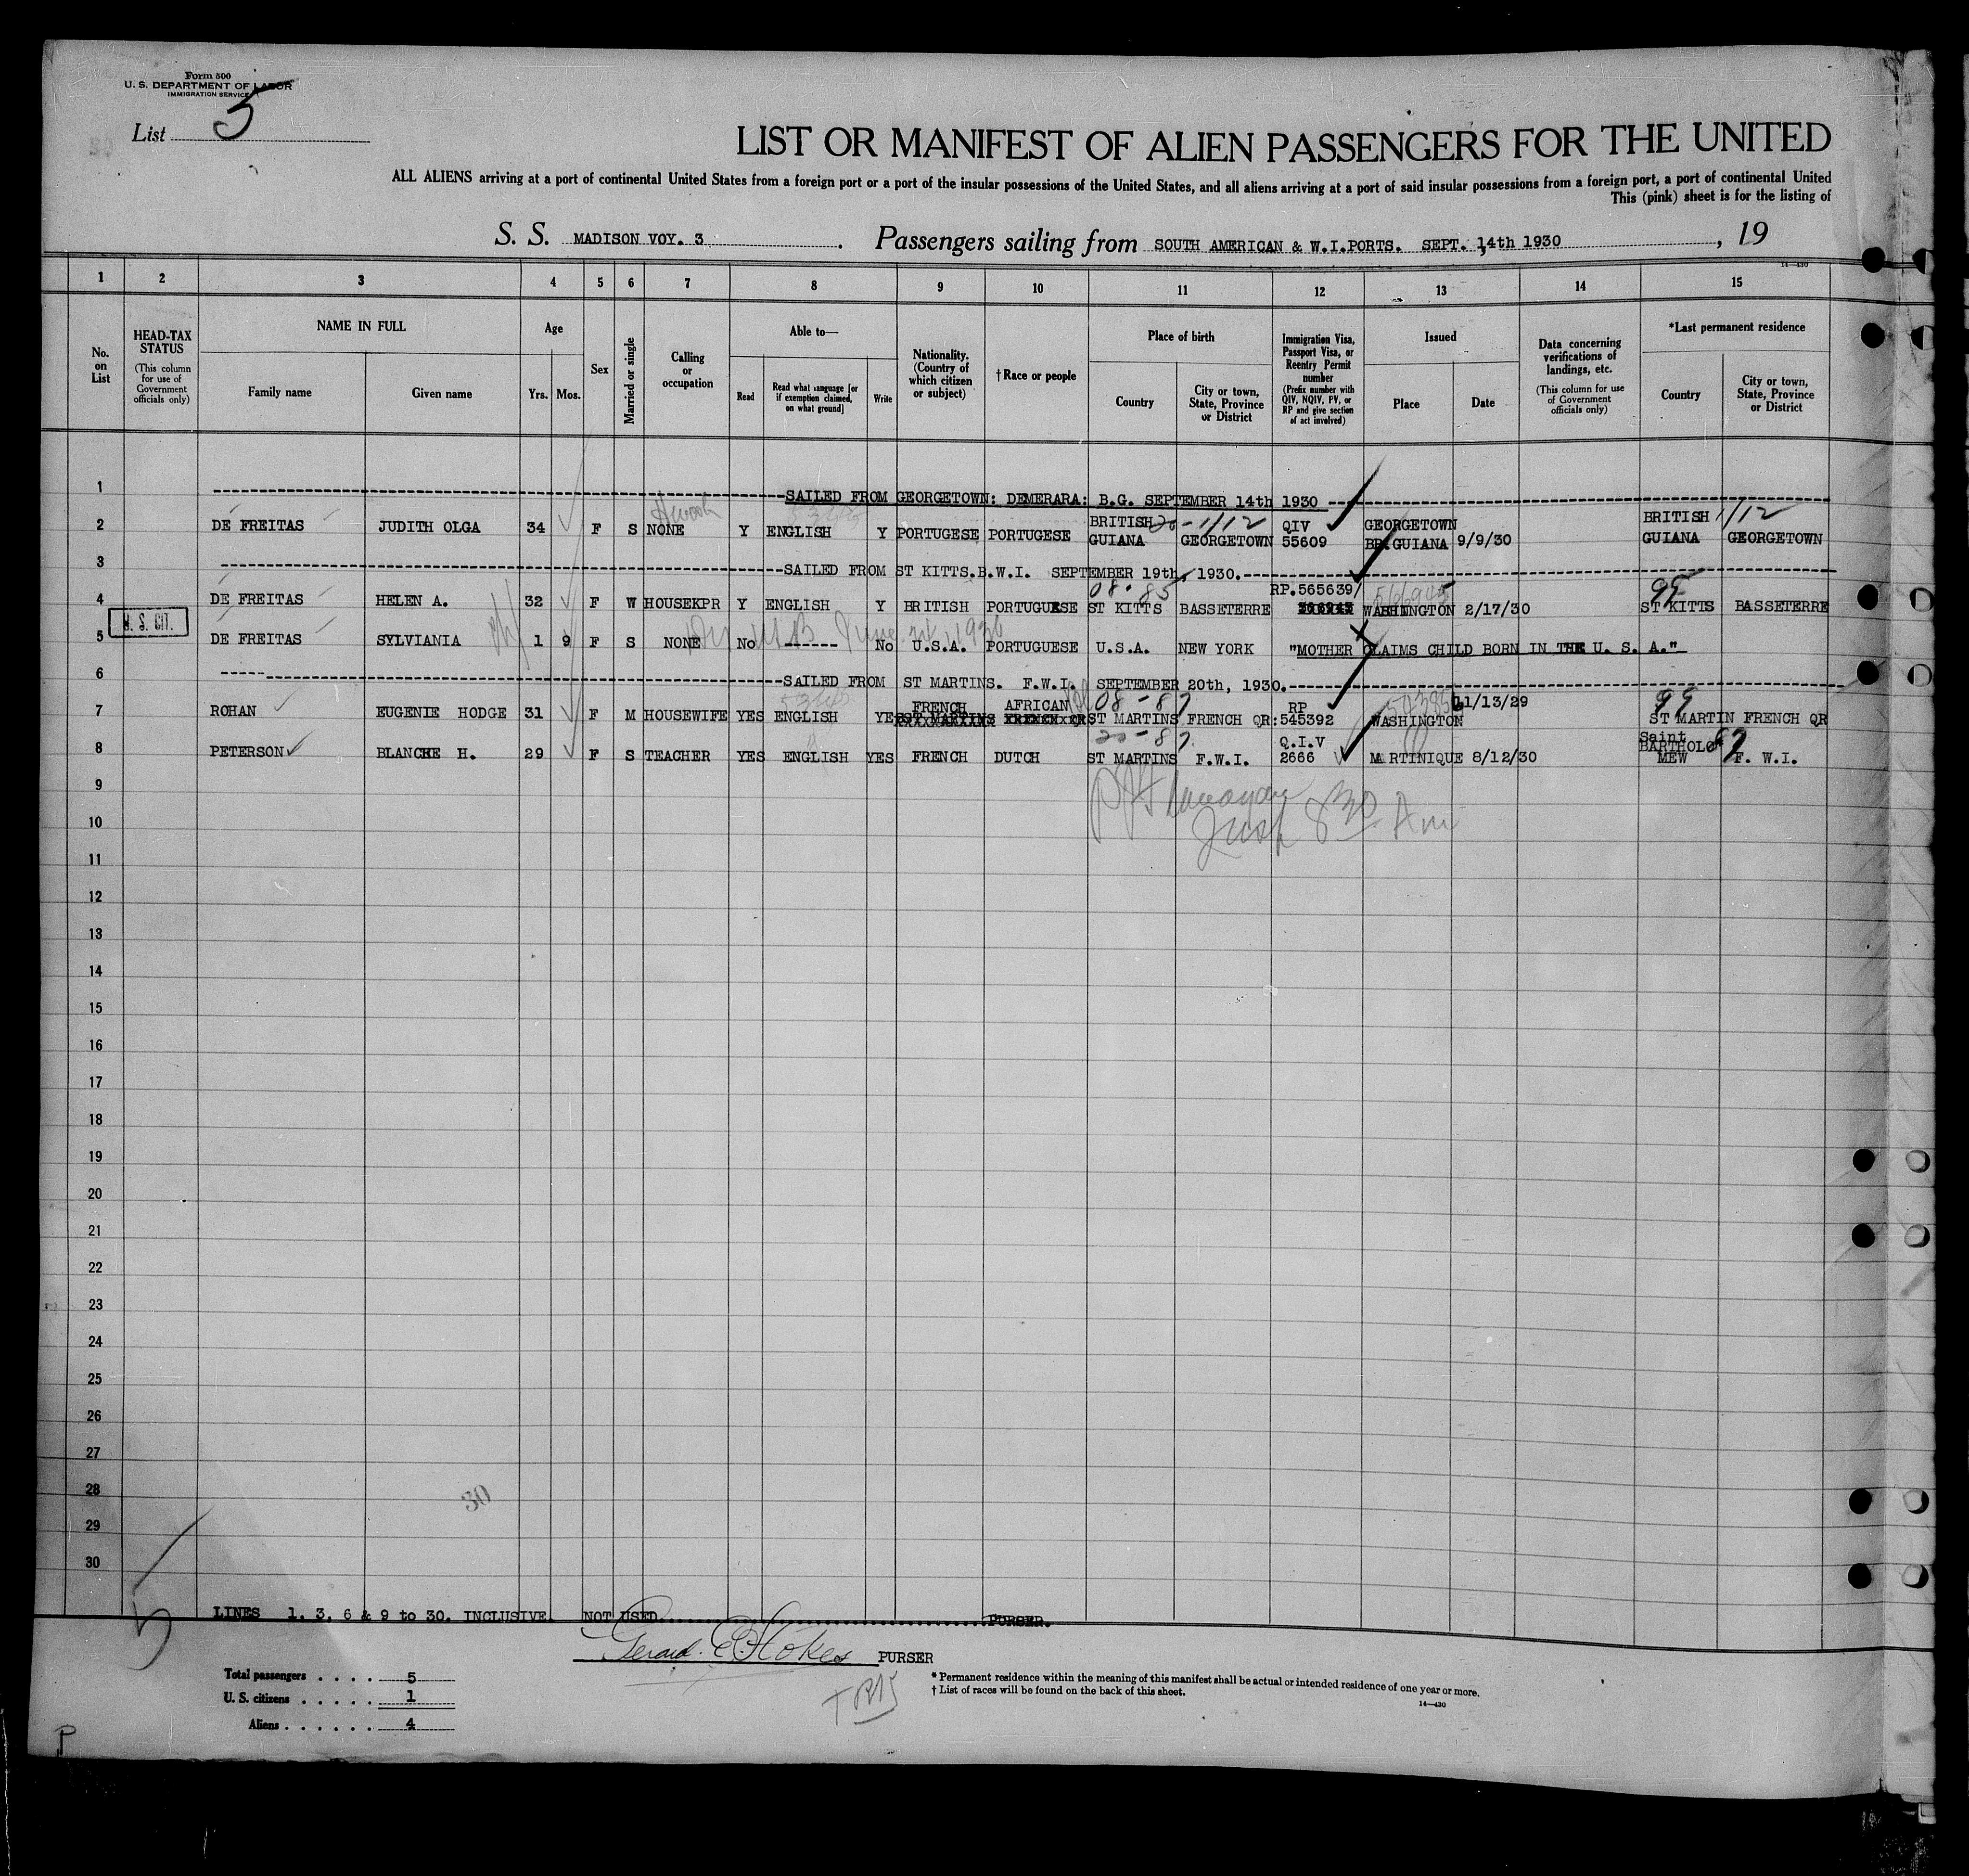 Form 500
U. S. DEPARTMENT OF LABOR
IMMIGRATION SERVICE
List 5
LIST OR MANIFEST OF ALIEN PASSENGERS FOR THE UNITED
ALL ALIENS arriving at a port of continental United States from a foreign port or a port of the insular possessions of the United States, and all aliens arriving at a port of said insular possessions from a foreign port, a port of continental United
This (pink) sheet is for the listing of
S. S. MADISON VOY. 3 . Passengers sailing from SOUTH AMERICAN & W.I.PORTS. SEPT. 14th 1930 , 19
14-430
1 2 3 4 5 6 7 8 9 10 11 12 13 14 15
No. on List
HEAD-TAX STATUS (This column for use of Government officials only)
NAME IN FULL
Family name
Given name
Age
Yrs. Mos.
Sex
Married or single
Calling or occupation
Able to—
Read
Read what language [or if exemption claimed, on what ground]
Write
Nationality. (Country of which citizen or subject)
†Race or people
Place of birth
Country
City or town, State, Province or District
Immigration Visa, Passport Visa, or Reentry Permit number (Prefix number with QIV, NQIV, PV, or RP and give section of act involved)
Issued
Place
Date
Data concerning verifications of landings, etc. (This column for use of Government officials only)
*Last permanent residence
Country
City or town, State, Province or District
1 SAILED FROM GEORGETOWN: DEMERARA: B.G. SEPTEMBER 14th 1930
2 DE FREITAS JUDITH OLGA 34 F S NONE Y ENGLISH Y PORTUGESE PORTUGESE BRITISH GUIANA 20-1/12 GEORGETOWN QIV 55609 GEORGETOWN BR.GUIANA 9/9/30 BRITISH GUIANA 1/12 GEORGETOWN
3 SAILED FROM ST KITTS.B.W.I. SEPTEMBER 19th, 1930.
4 DE FREITAS HELEN A. 32 F W HOUSEKPR Y ENGLISH Y BRITISH PORTUGUESE 08-85 ST KITTS BASSETERRE RP.565639/ 566945 WASHINGTON 2/17/30 ST KITTS BASSETERRE
U. S. CIT.
5 DE FREITAS SYLVIANIA 1 9 F S NONE No ------ No U.S.A. PORTUGUESE U.S.A. NEW YORK "MOTHER CLAIMS CHILD BORN IN THE U. S. A."
6 SAILED FROM ST MARTINS. F.W.I. SEPTEMBER 20th, 1930.
7 ROHAN EUGENIE HODGE 31 F M HOUSEWIFE YES ENGLISH YES FRENCH AFRICAN 08-87 ST MARTINS FRENCH QR: RP 545392 WASHINGTON 11/13/29 99 ST MARTIN FRENCH QR
8 PETERSON BLANCHE H. 29 F S TEACHER YES ENGLISH YES FRENCH DUTCH 20-87 ST MARTINS F.W.I. Q.I.V 2666 MARTINIQUE 8/12/30 Saint BARTHOLO MEW 87 F. W.I.
8 30 Am
9
10
11
12
13
14
15
16
17
18
19
20
21
22
23
24
25
26
27
28
29
30
30
LINES 1, 3, 6 & 9 to 30. INCLUSIVE NOT USED PURSER.
Gerard E Stokes PURSER
Total passengers . . . . 5
U. S. citizens . . . . . 1
Aliens . . . . . . 4
* Permanent residence within the meaning of this manifest shall be actual or intended residence of one year or more.
† List of races will be found on the back of this sheet.
14-430
P